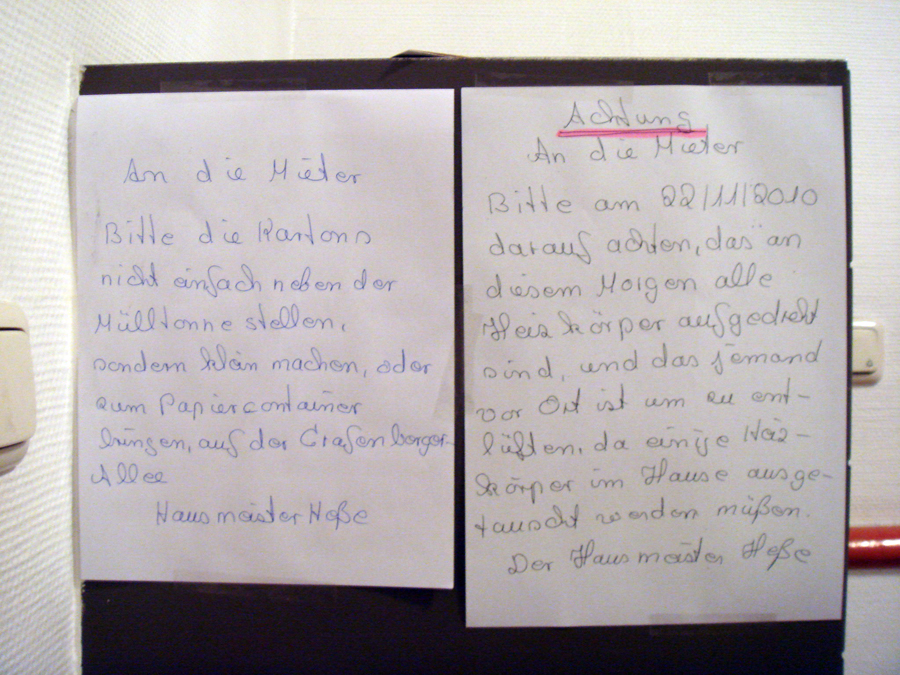 An die Mieter
Bitte die Kartons
nicht einfach neben der
Mülltonne stellen,
sondern klein machen, oder
zum Papiercontainer
bringen, auf der Grafenberger
Allee
Hausmeister Heße
Achtung
An die Mieter
Bitte am 22/11/2010
darauf achten, das an
diesem Morgen alle
Heizkörper aufgedreht
sind, und das jemand
vor Ort ist um zu ent-
lüften, da einige Heiz-
körper im Hause ausge-
tauscht werden müßen.
Der Hausmeister Heße